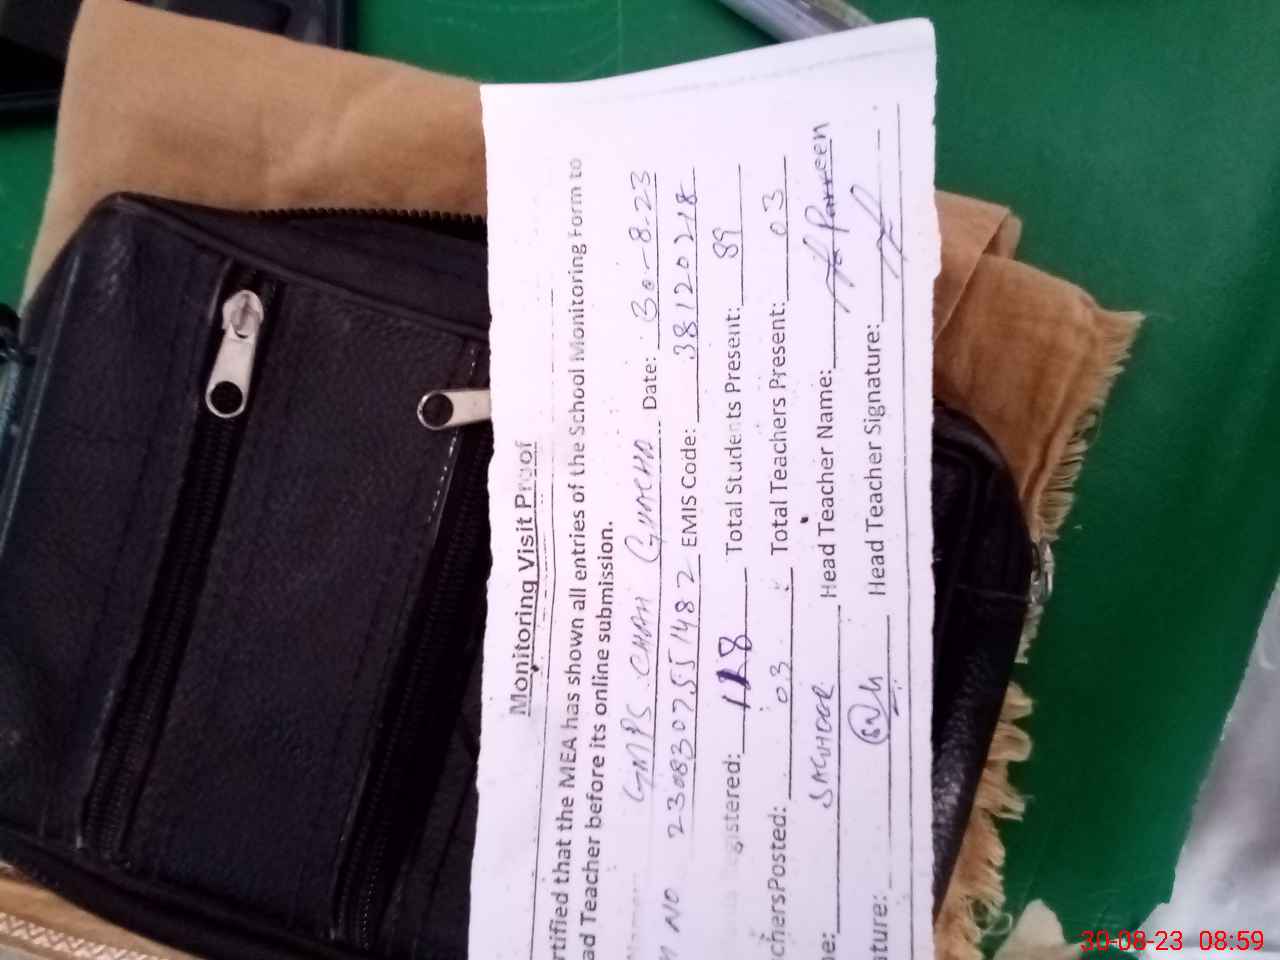 Monitoring Visit Proof
rtified that the MEA has shown all entries of the School Monitoring Form to
ad Teacher before its online submission.
GMPS CHAH GHACHO Date: 30-8-23
NO 2308307551482 EMIS Code: 38120218
gistered: 128 Total Students Present: 89
chersPosted: 03 Total Teachers Present: 03
me: Head Teacher Name: Parveen
ature: Head Teacher Signature:
30-08-23 08:59